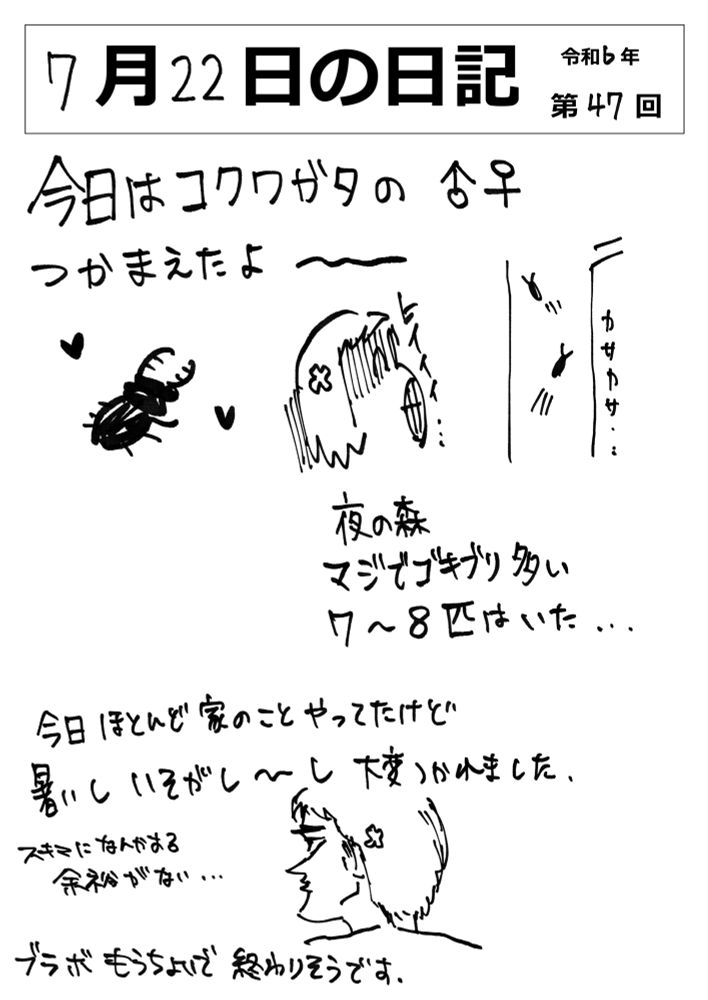 7月22日の日記
令和6年
第47回
今日はコクワガタの ♂♀
つかまえたよ 〜
ヒイイイ…
カサカサ…
夜の森
マジでゴキブリ多い
7〜8匹はいた...
今日ほとんど家のことやってたけど
暑いし いそがし〜し 大変つかれました.
スキマになんかする
余裕がない...
ブラボもうちょいで 終わりそうです.